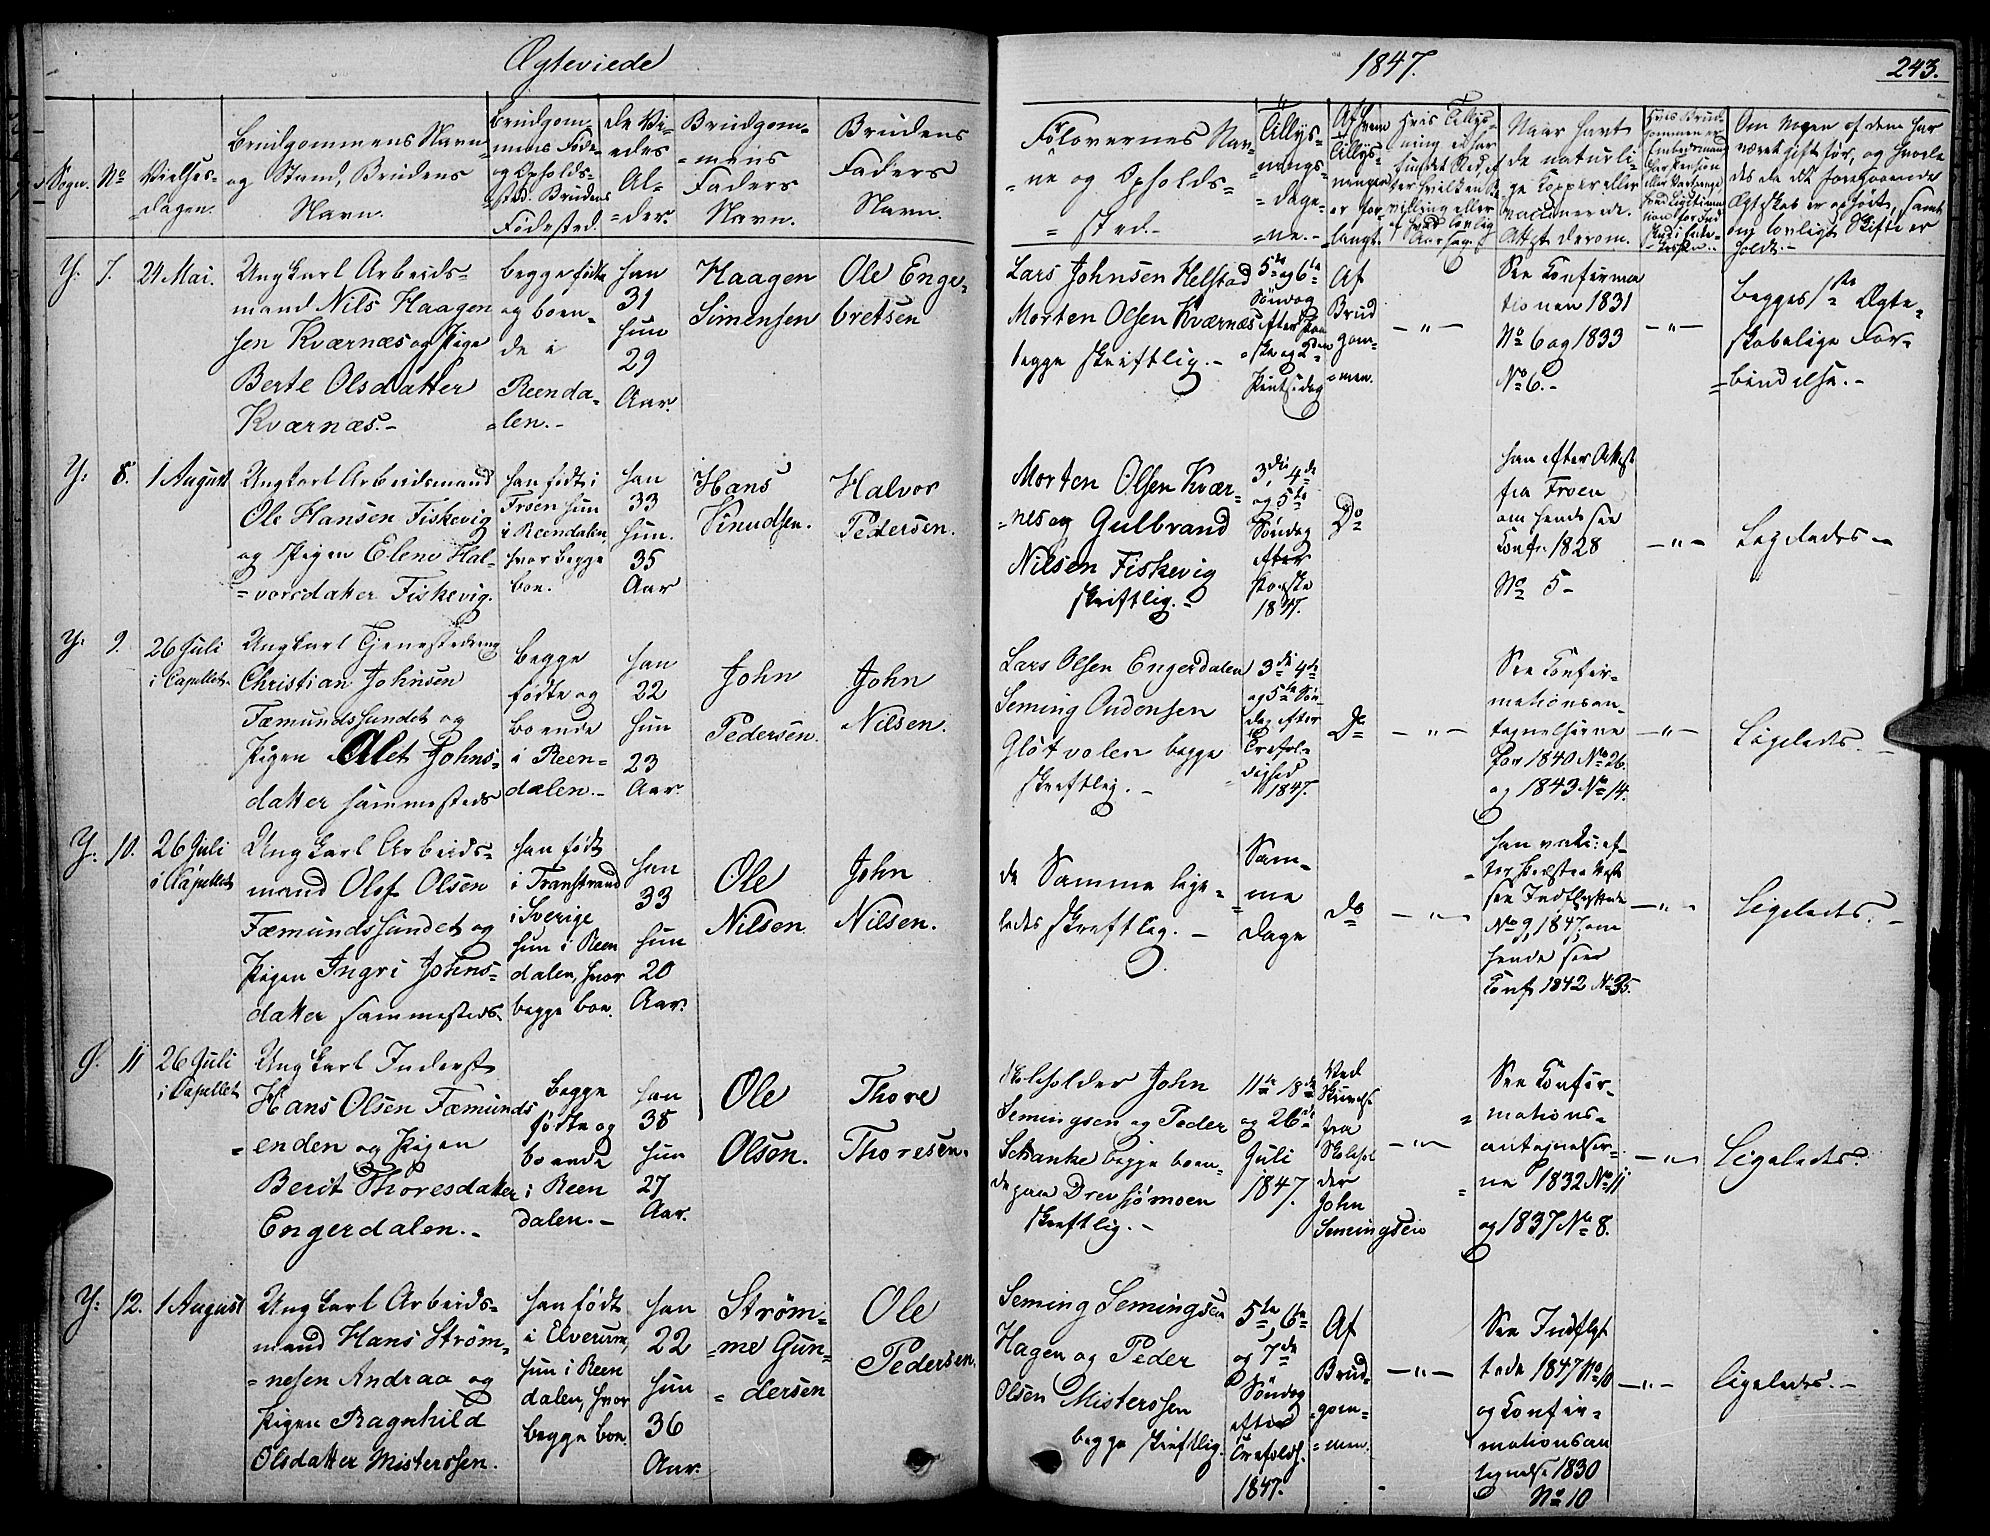 Ægteviede
1847.
243.
Sogn.
No
Vielses-
dagen.
Brudgommens Navn
og Stand, Brudens
Navn.
Brudgom-
mens Føde-
og Opholds-
sted. Brudens
Fødested.
de Vi-
edes
Al-
der.
Brudgom-
mens
Faders
Navn.
Brudens
Faders
Navn.
Forlovernes Nav-
ne og Opholds-
sted.
Tillys-
nings-
dage-
ne.
Af hvem
Tillys-
ningen
er for-
langt.
Naar havt
de naturli-
ge Kopper eller
vaccinerede.
Attest derom.
Om Nogen af dem har
været gift før, og hvorle-
des da det foregaaende
Ægteskab er ophørt, samt
om lovligt Skifte er
holdt.
Y. 7. 24 Mai.
Ungkarl Arbeids-
mand Nils Haagen
sen Kværnæs og Pige
Berte Olsdatter
Kværnæs.
begge født
og boen-
de i
Reenda-
len.
han
31
hun
29
Aar.
Haagen
Simensen
Ole Enge-
bretsen
Lars Johnsen Helstad
Morten Olsen Kværnæs
begge skriftlig.
5te og 6te
Søndag
efter Paa
ske og 2den
Pintsedag
Af
Brud
gom-
men.
— " —
See Confirma
tionen 1831
No 6 og 1833
No 6.
— " —
Begges 1ste Ægte-
skabelige For-
bindelse.
Y: 8. 1 August
Ungkarl Arbeidsmand
Ole Hansen Fiskevig
og Pigen Elene Hal-
vorsdatter Fiskevig.
han født i
Froen hun
i Reendalen,
hvor begge
boe.
han
33
hun.
35
Aar
Hans
Knudsen.
Halvor
Pedersen.
Morten Olsen Kvær-
nes og Gulbrand
Nilsen Fiskevig
skriftlig.
3die 4de
og 5te
Søndag
efter
Paaske
1847.
Do
han efter Attest
fra Froen
om hende see
Conf. 1828
No 5
— " —
Ligeledes
Y: 9. 26 Juli
i Capellet.
Ungkarl Tjenestedreng
Christian Johnsen
Fæmundssundet og
Pigen Alet Johns-
datter sammesteds
begge
fødte og
boende
i Reen-
dalen.
han
22
hun
23
Aar.
John
Pedersen.
John
Nilsen.
Lars Olsen Engerdalen
Seming Andensen
Gløtvolen begge
skriftlig.
3die 4de
og 5te Søn
dag efter
Trefol-
dighed
1847.
Do
— " —
See Confir-
mationsan-
tegnelserne
for 1840 No 26.
og 1843 No 14.
— " —
Ligeleds.
Y: 10. 26 Juli
i Capellet
Ungkarl Arbeids-
mand Olof Olsen
Fæmundssundet og
Pigen Ingri Johns-
datter sammesteds.
han født
i Transtrand
i Sverige
hun i Reen
dalen, hvor
begge boe.
han
33
hun
20
Aar.
Ole
Nilsen
John
Nilsen.
de Samme lige-
ledes skriftlig.
Sam-
me
Dage
Do
— " —
han vakc: ef-
ter
see Indflyttede
No 9, 1847, om
hende see
Conf 1842 No 35.
— " —
Ligeledes.
Y. 11 26 Juli
i Capellet
Ungkarl Inderst
Hans Olsen Fæmunds
enden og Pigen
Berit Thoresdatter
Engerdalen.
begge
fødte og
boende
i Reen
dalen.
han
38
hun
27
Aar.
Ole
Olsen.
Thore
Thoresen.
Skoleholder John
Semingsen og Peder
Schanke begge boen-
de paa Drevsjømoen
skriftlig.
11te 18de
og 26de
Juli
1847.
Ved
fra
Skolehol
der
John
Semingsen
— " —
See Confir-
mations-
antegnelser-
ne 1832 No 11
og 1837 No 8.
— " —
Ligeledes.
Y: 12. 1 August
Ungkarl Arbeids-
mand Hans Strøm-
nesen Andraa og
Pigen Ragnhild
Olsdatter Misterssen.
han født
i Elverum,
hun i Reen
dalen, hvor
begge boe.
han
22
hun
36
Aar.
Strøm-
me Gun-
dersen
Ole
Pedersen.
Seming Semingsen
Hagen og Peder
Olsen Misterssen
begge skriftlig.
5te 6te
og 7de
Søndag
efter
Trefoldh.
1847.
Af
Brud-
gom-
men.
— " —
See Indflyt
tede 1847 No 10
og Confir-
mationsan
tegnelse 1830
No 10
— " —
Ligeledes.